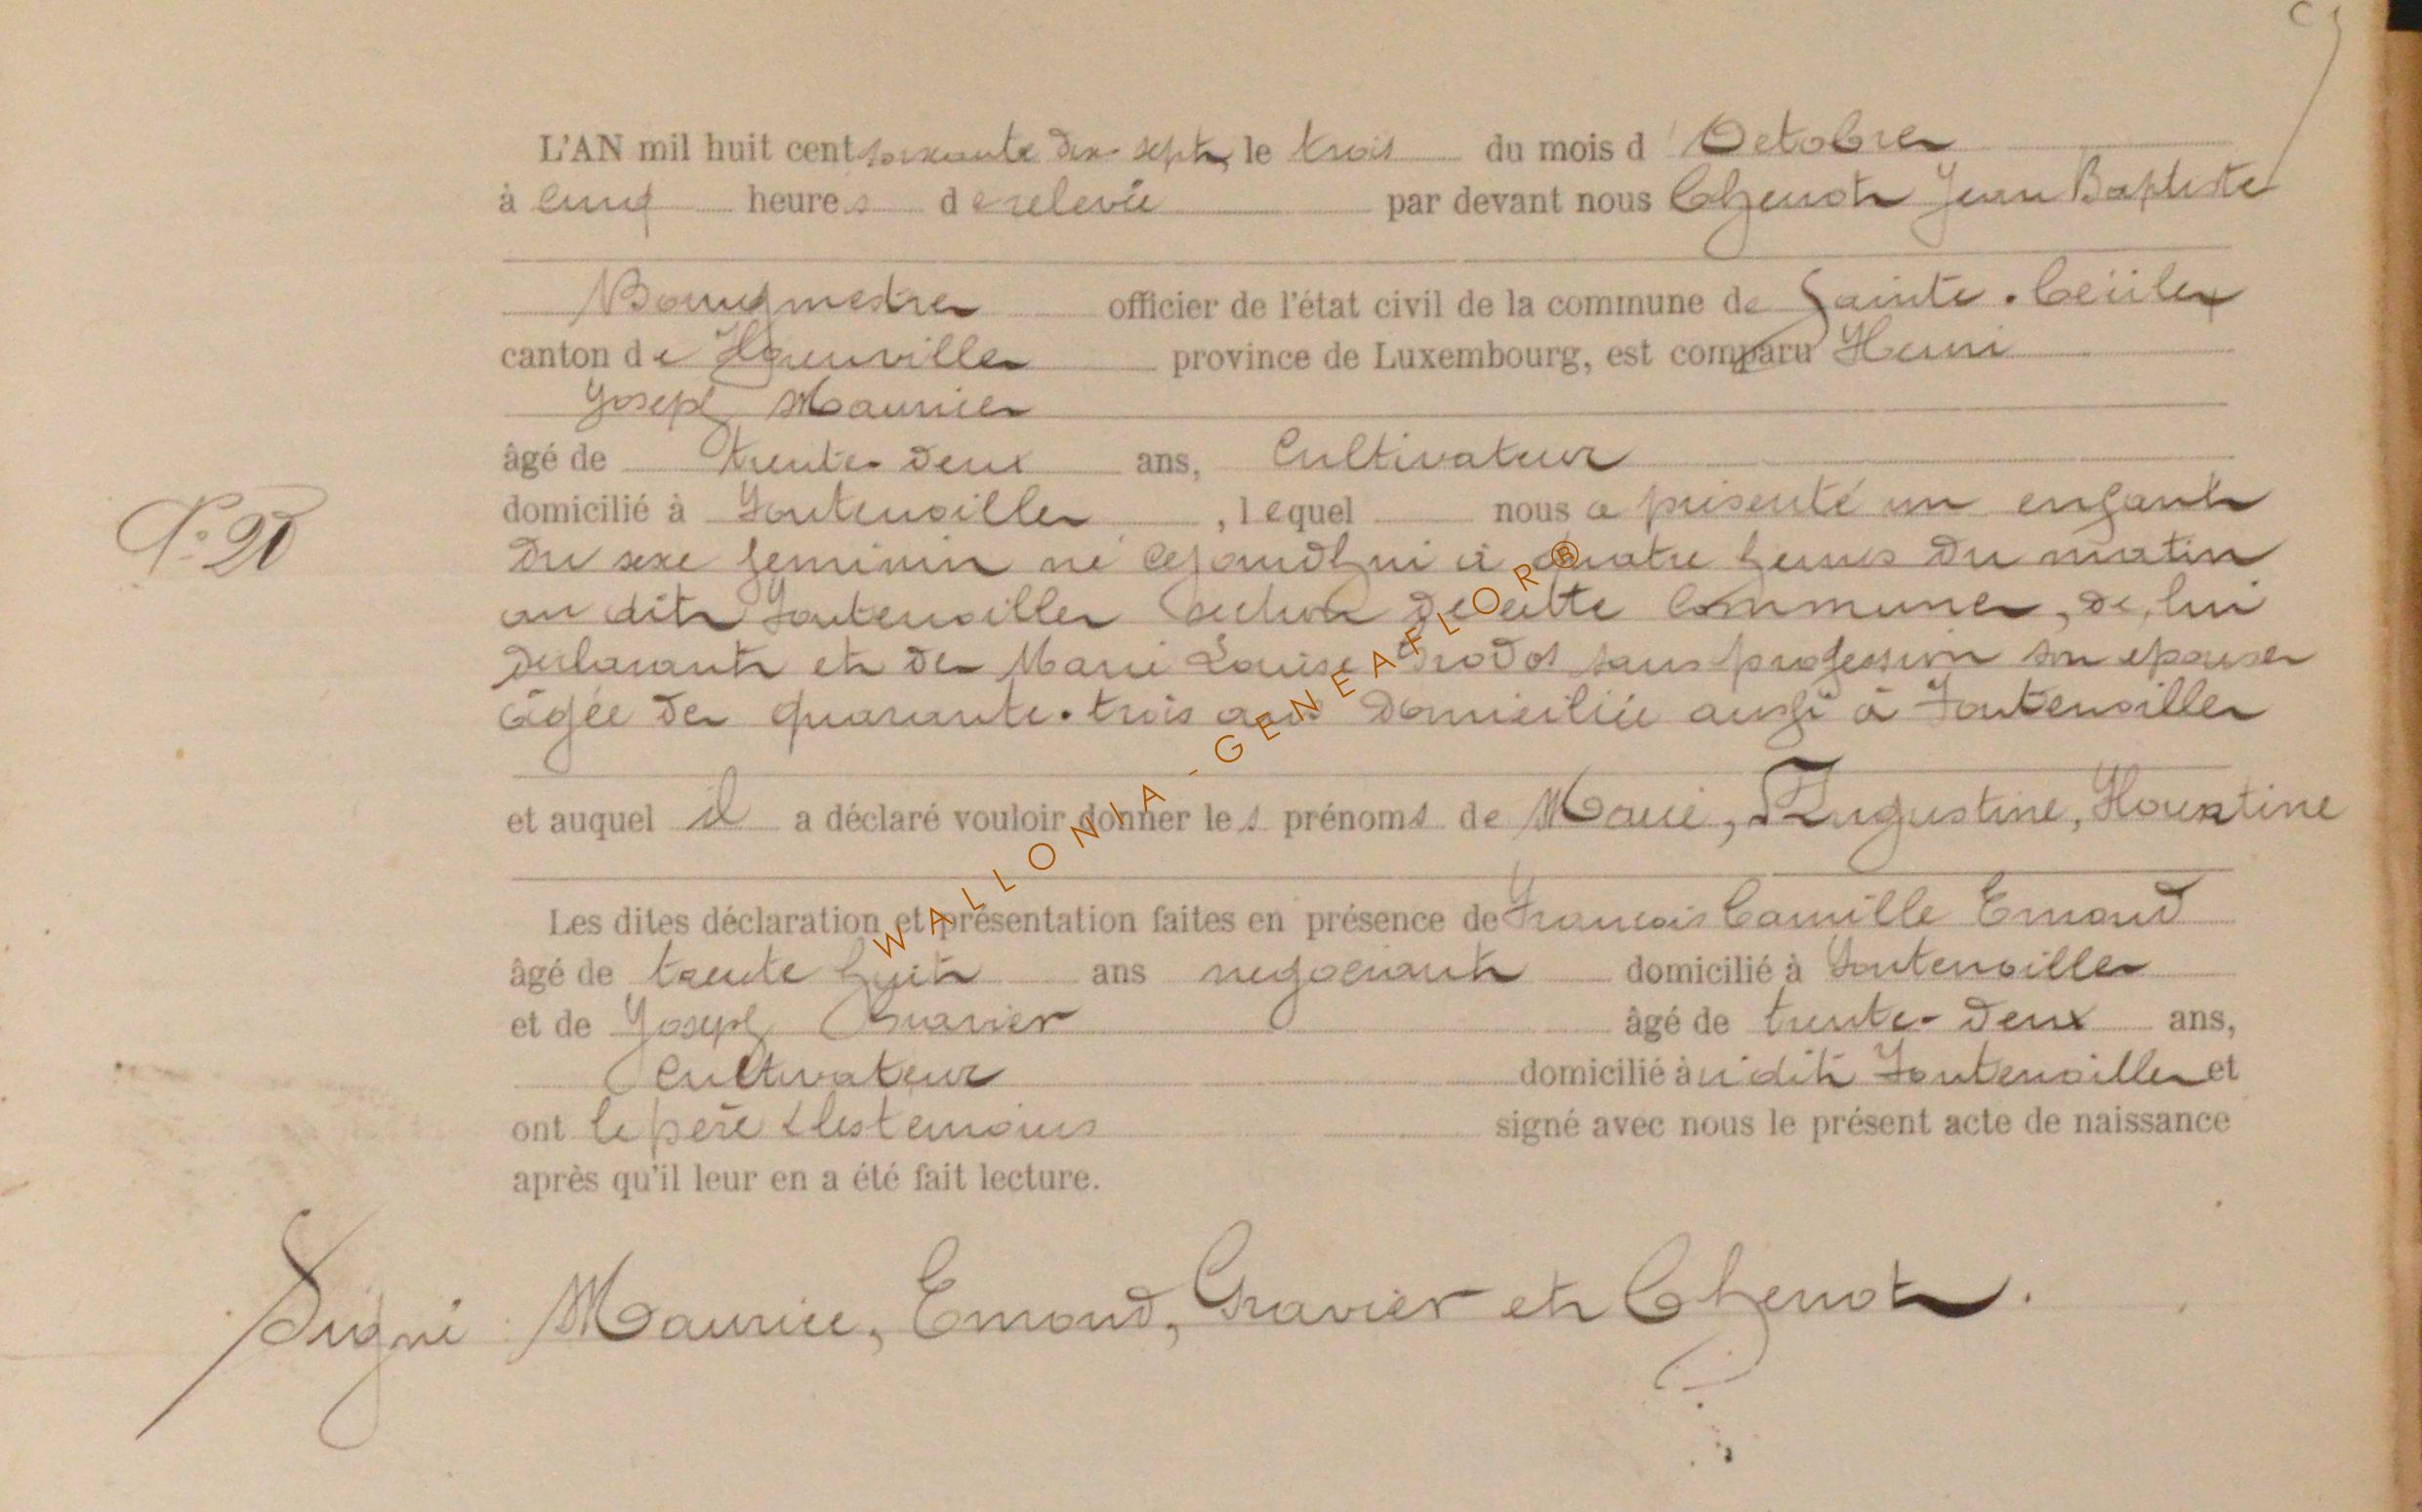 L'AN mil huit cent soixante dix sept, le trois du mois d Octobre
à cinq heures de relevée par devant nous Chenot Jean Baptiste
Bourgmestre officier de l'état civil de la commune de Sainte-Cécile
canton de Florenville province de Luxembourg, est comparu Henri
Joseph Maurice
âgé de trente-deux ans, Cultivateur
domicilié à Fontenoille, lequel nous a présenté un enfant
du sexe feminin né cejourdhui à quatre heures du matin
au dit Fontenoille section de cette Commune, de lui
declarant et de Marie Louise sans profession son epouse
âgée de quarante-trois ans domiciliée aussi à Fontenoille
et auquel il a déclaré vouloir donner les prénoms de Marie, Augustine,
Les dites déclaration et présentation faites en présence de François Camille Emond
âgé de trente huit ans negociant domicilié à Fontenoille
N° 20
et de Joseph Gravier âgé de trente-deux ans,
Cultivateur domicilié au dit Fontenoille et
ont le père & les temoins signé avec nous le présent acte de naissance
après qu'il leur en a été fait lecture.
Signé Maurice, Emond, Gravier et Chenot.
WALLONIA - GENEAFLOR®